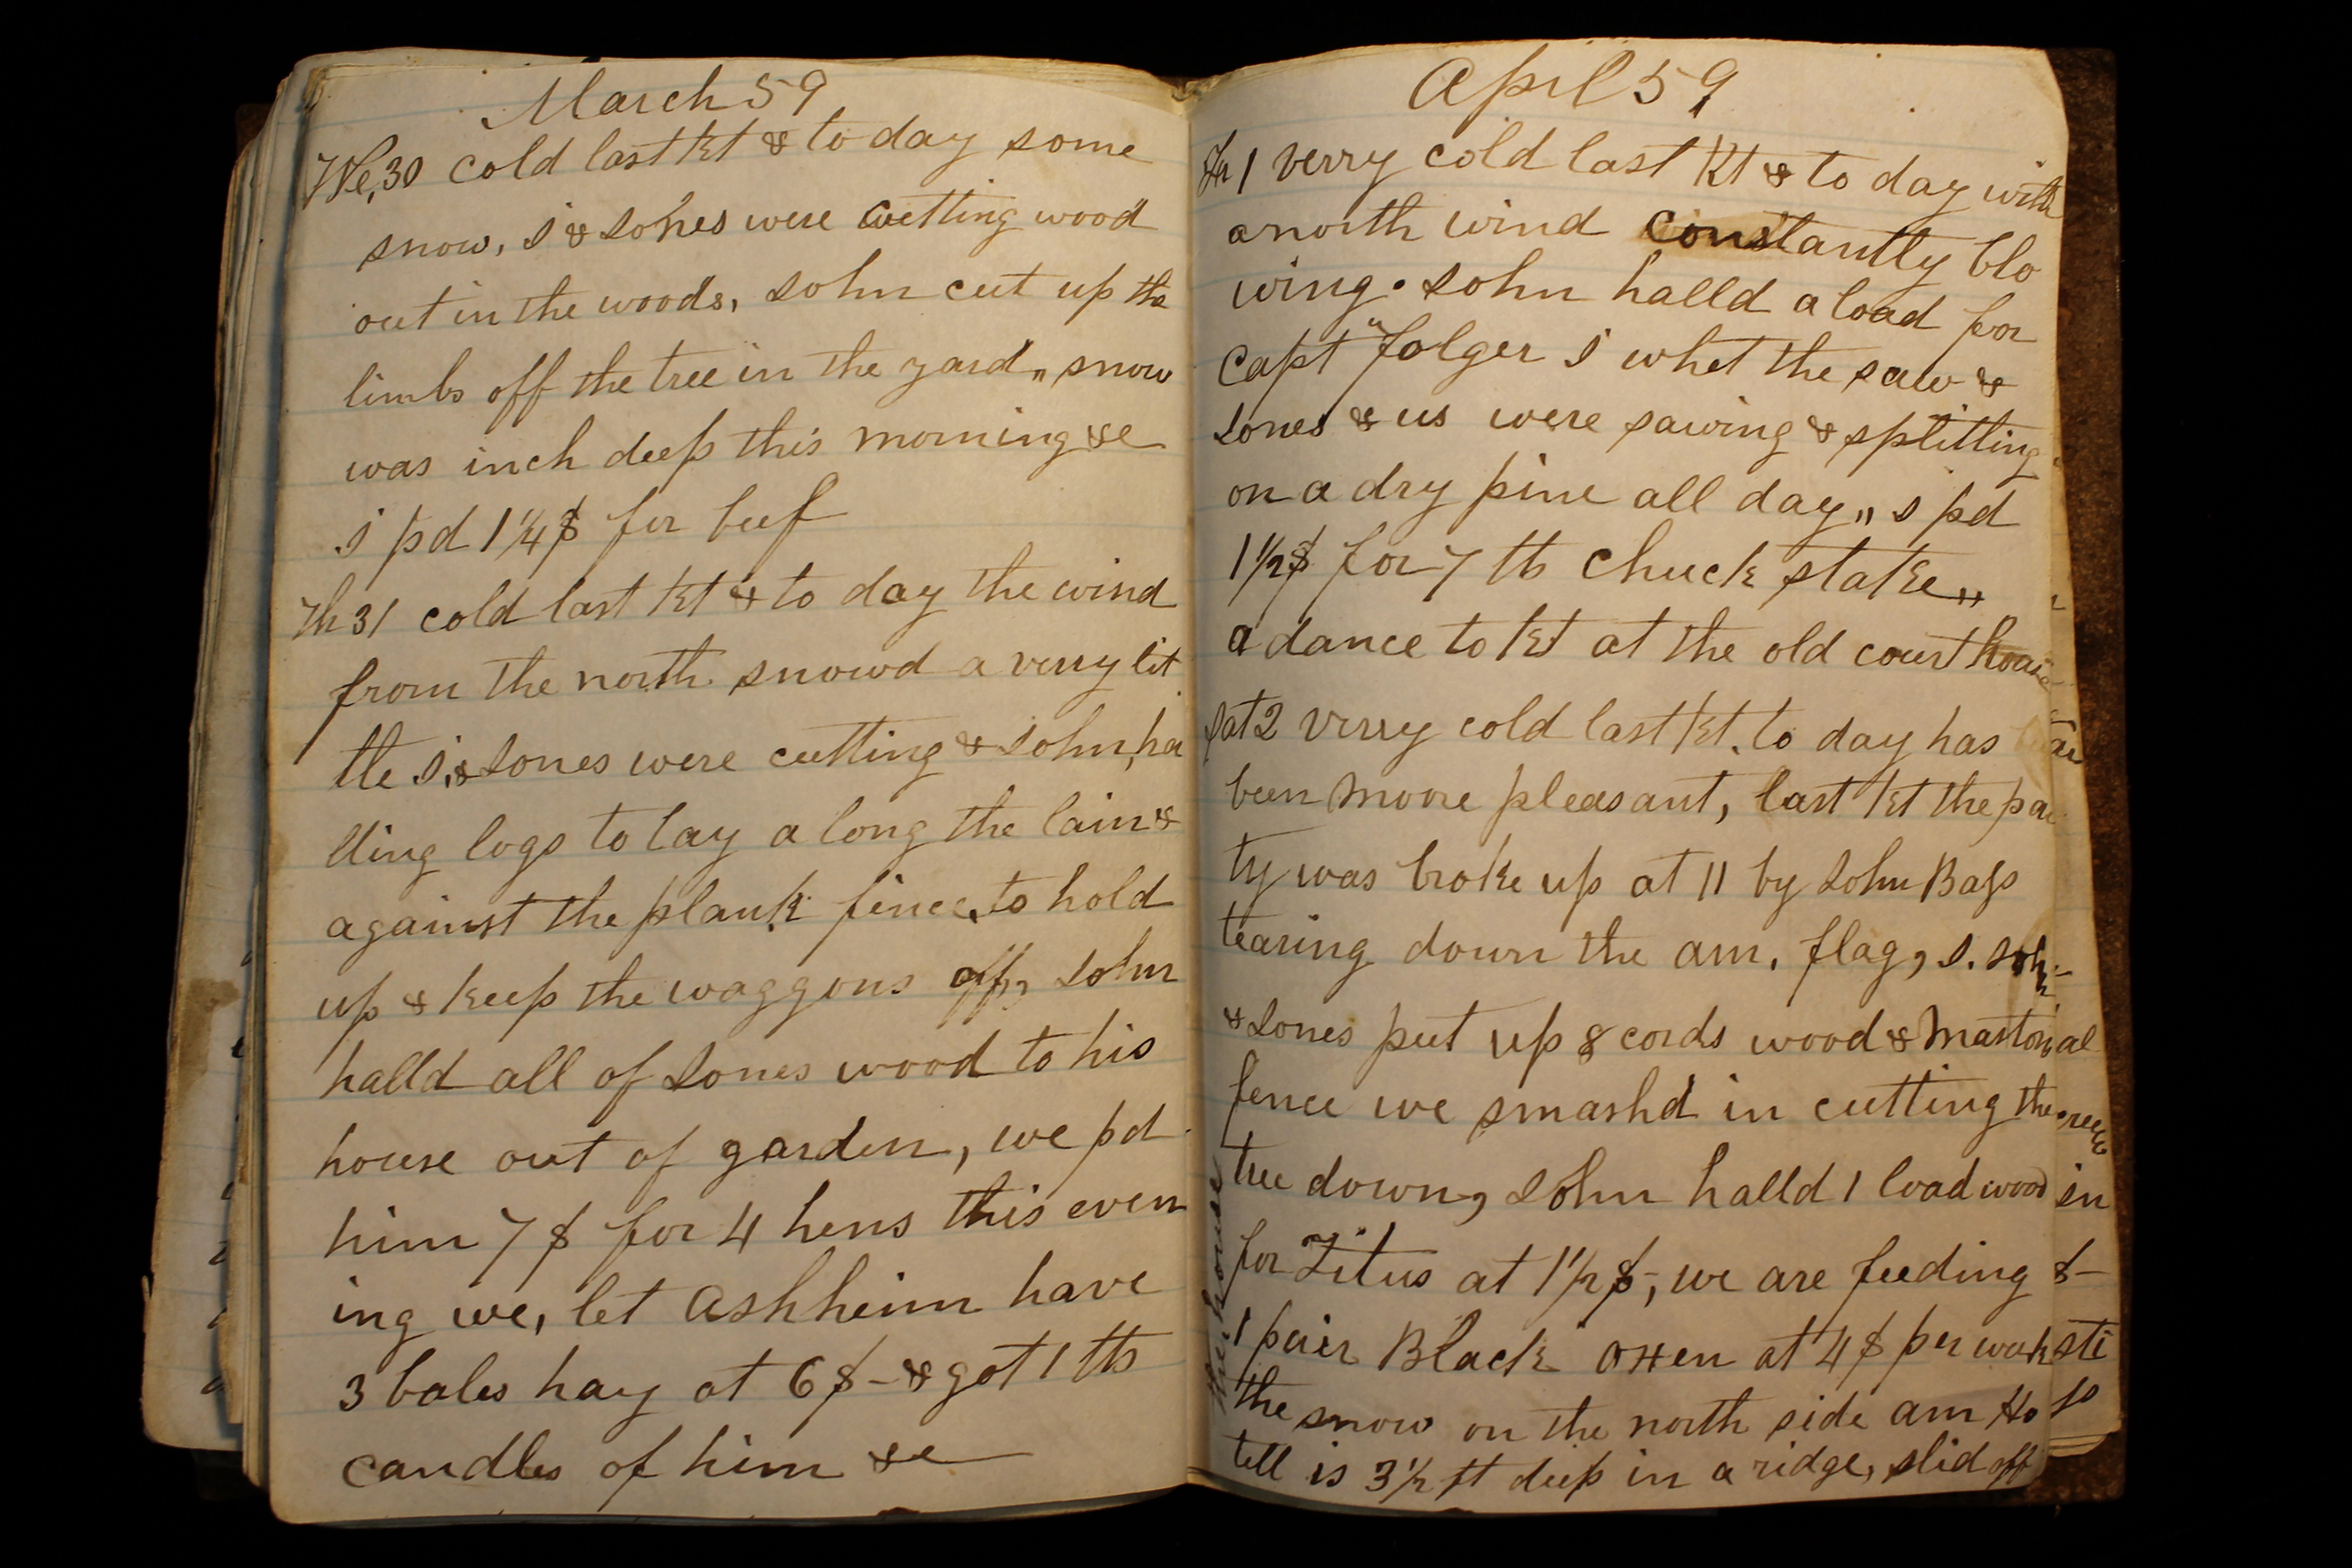 March 59
We, 30 cold last kt & to day some
snow, I & Jones were cutting wood
out in the woods, John cut up the
limbs off the tree in the yard,, snow
was inch deep this morning &c
I pd 1 1/4 $ for beef
Th 31 cold last kt & to day the wind
from the north. snowd a verry lit
tle I, & Jones were cutting & John, ha
lling logs to lay a long the lain &
against the plank fence, to hold
up & keep the waggons off, John
halld all of Jones wood to his
house out of garden, we pd
him 7 $ for 4 hens this even
ing we, let Ashheim have
3 bales hay at 6 $ - & got 1 lb
candles of him &c
April 59
Fr 1 verry cold last kt & to day with
a north wind constantly blo
wing. John halld a load for
Capt "Folger I whet the saw &
Jones & us were sawing & splitting
on a dry pine all day,, I pd
1 1/2 $ for 7 lb chuck stake,,
a dance to kt at the old court house
Sat 2 verry cold last kt. to day has
been moore pleasant, last kt the par
ty was broke up at 11 by John Bass
tearing down the am. flag, I. John
& Jones put up 8 cords wood & Mastons
fence we smashd in cutting the
tree down, John halld 1 load wood
for Titus at 1 1/2 $-, we are feeding
1 pair Black oxen at 4 $ per week
the snow on the north side am Ho
tell is 3 1/2 ft deep in a ridge, slid off
the house